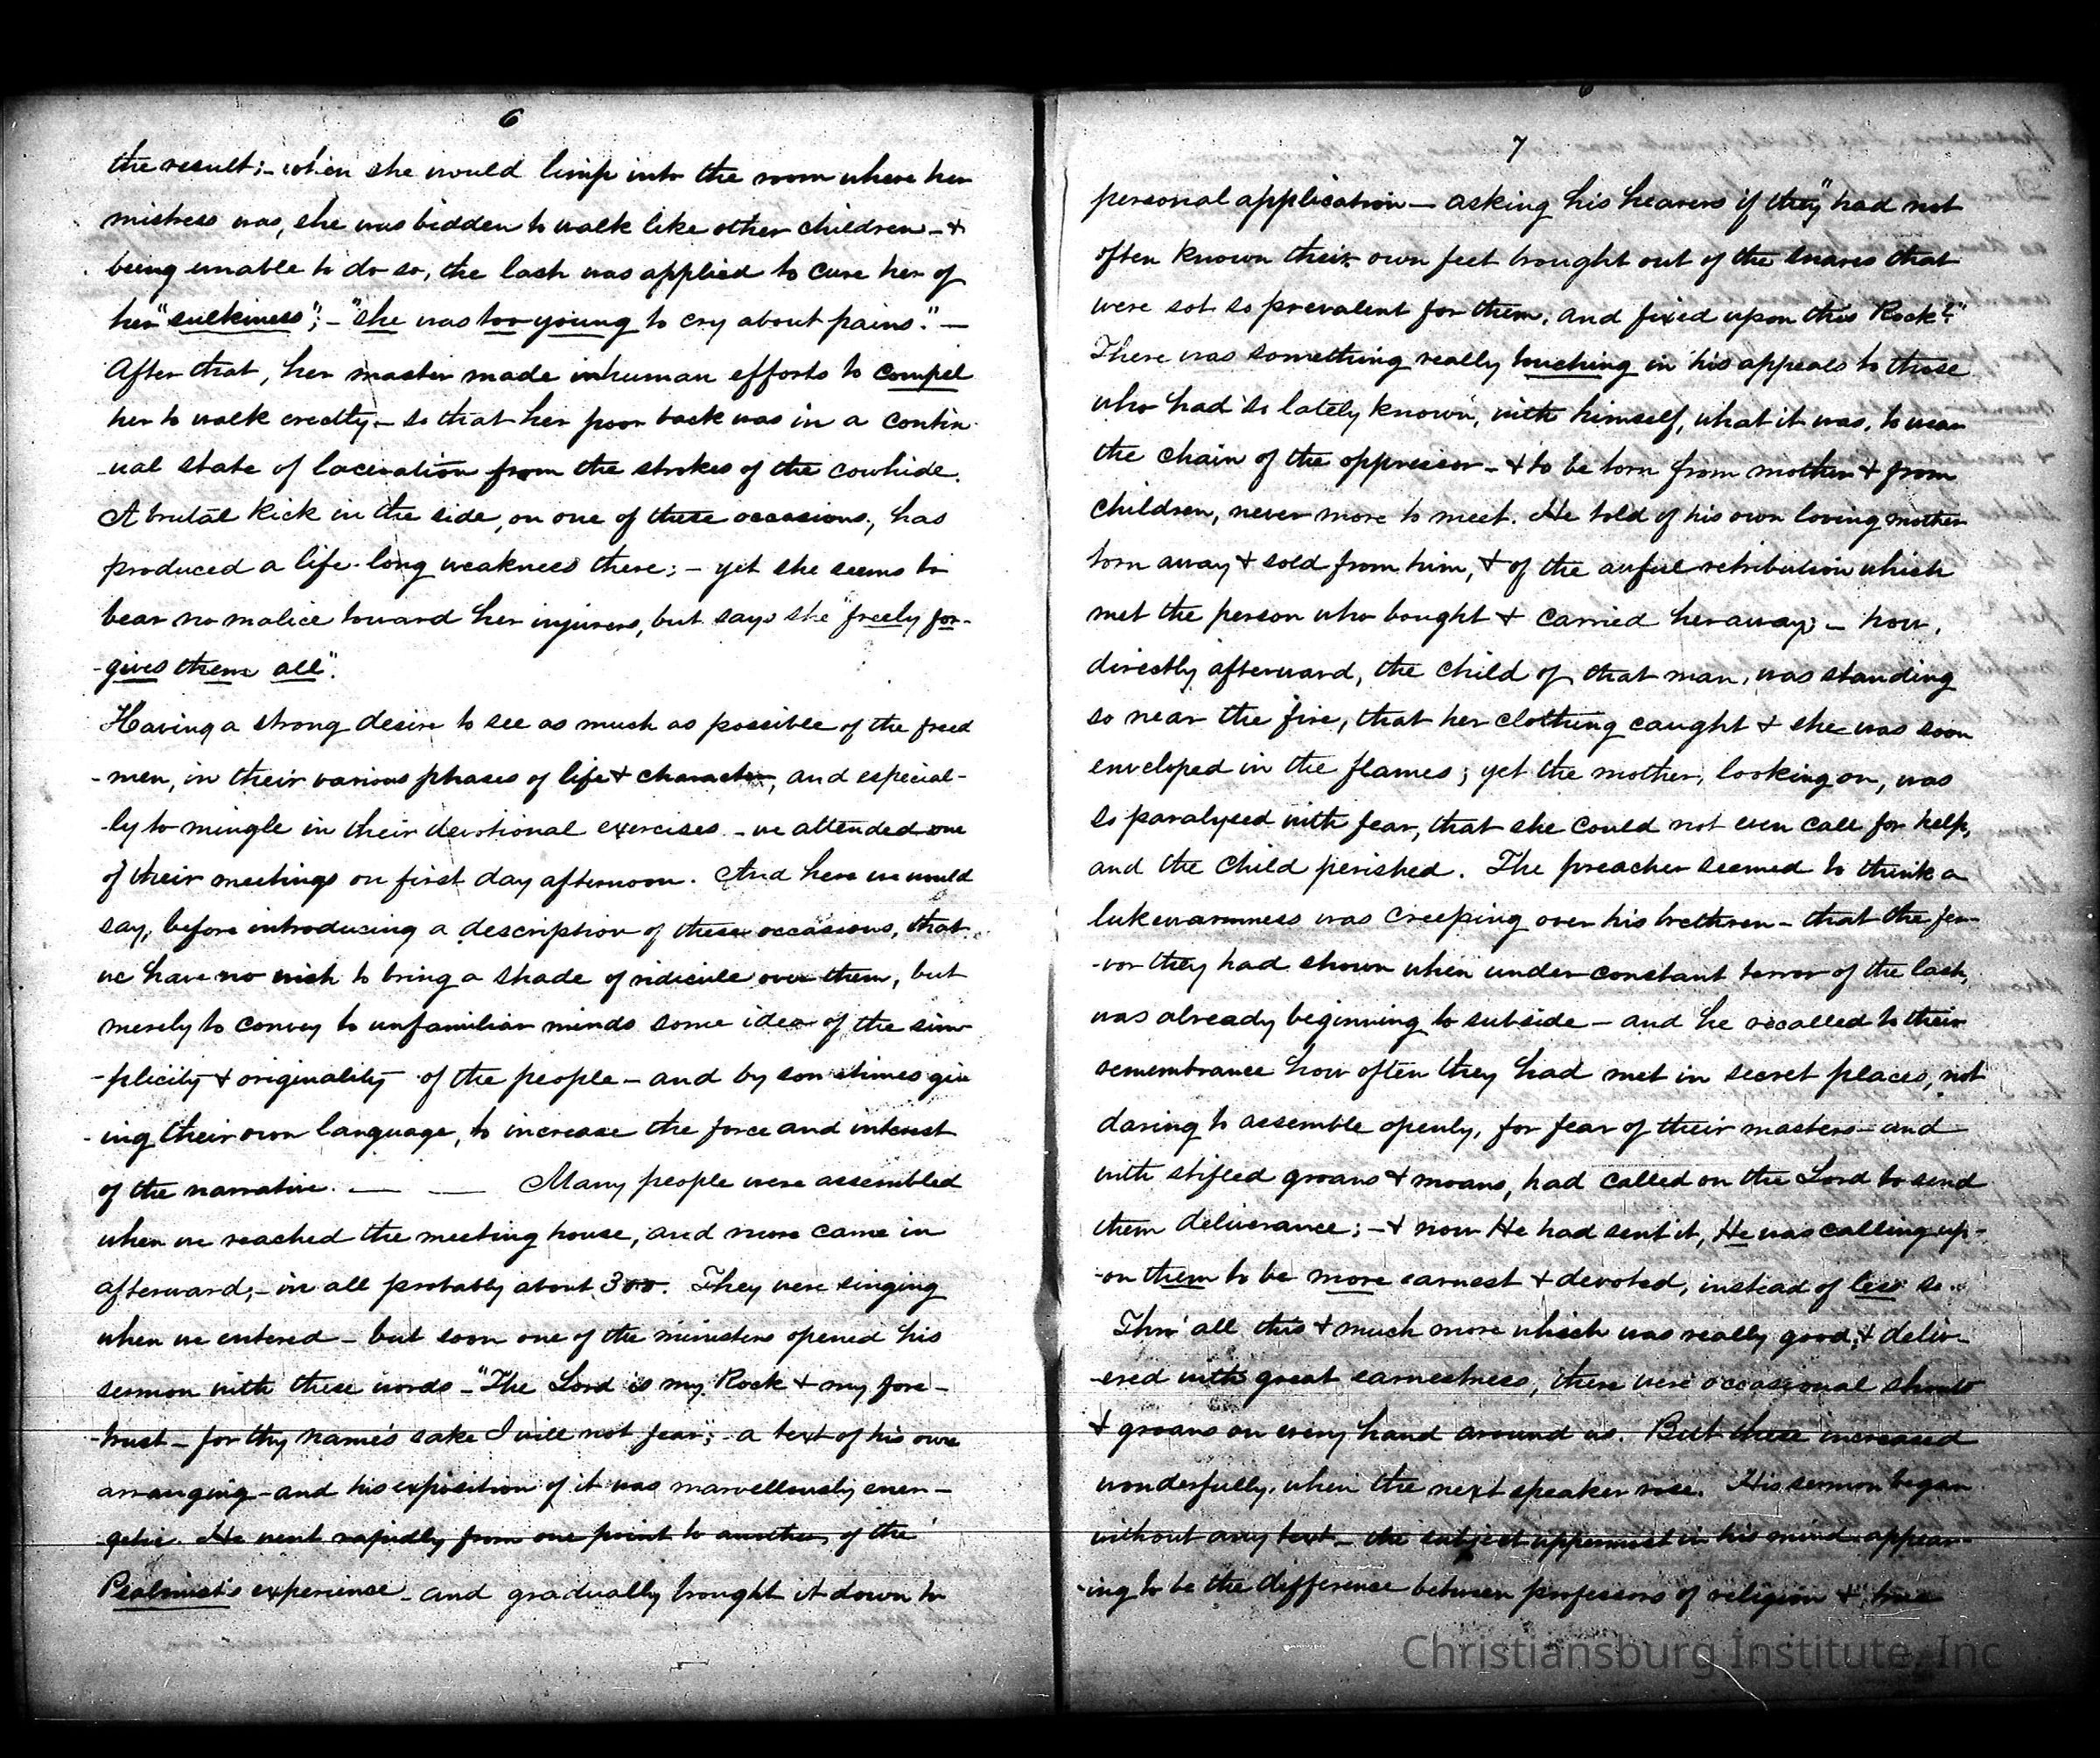 6
the result; - when she would limp into the room where her
mistress was, she was bidden to walk like other children - &
being unable to do so, the lash was applied to cure her of
her "sulkiness"; - "she was too young to cry about pains." —
After that, her master made inhuman efforts to compel
her to walk erectly - so that her poor back was in a contin-
-ual state of laceration from the strokes of the cowhide.
A brutal kick in the side, on one of these occasions, has
produced a life-long weakness there; - yet she seems to
bear no malice toward her injurers, but says she "freely for-
-gives them all".
Having a strong desire to see as much as possible of the freed
-men, in their various phases of life & character, and especial-
-ly to mingle in their devotional exercises - we attended one
of their meetings on first day afternoon. And here we would
say, before introducing a description of these occasions, that
we have no wish to bring a shade of ridicule over them, but
merely to convey to unfamiliar minds some idea of the sim-
-plicity & originality of the people - and by sometimes giv-
-ing their own language, to increase the force and interest
of the narrative. — — Many people were assembled
when we reached the meeting house, and more came in
afterward, - in all probably about 300. They were singing
when we entered - but soon one of the ministers opened his
sermon with these words - "The Lord is my Rock & my fore-
-trust - for thy name's sake I will not fear"; - a text of his own
arranging - and his exposition of it was marvellously ener-
-getic. He went rapidly from one point to another, of the
Psalmist's experience - and gradually brought it down to
7
personal application - asking his hearers if they "had not
often known their own feet brought out of the snares that
were sot so prevalent for them, and fixed upon this Rock?"
There was something really touching in his appeals to those
who had so lately known, with himself, what it was, to wear
the chain of the oppressor - & to be torn from mother & from
children, never more to meet. He told of his own loving mother
torn away & sold from him, & of the awful retribution which
met the person who bought & carried her away; - how,
directly afterward, the child of that man, was standing
so near the fire, that her clothing caught & she was soon
enveloped in the flames; yet the mother, looking on, was
so paralysed with fear, that she could not even call for help,
and the child perished. The preacher seemed to think a
lukewarmness was creeping over his brethren - that the fer-
-vor they had shown when under constant terror of the lash,
was already beginning to subside - and he recalled to their
remembrance how often they had met in secret places, not
daring to assemble openly, for fear of their masters - and
with stifled groans & moans, had called on the Lord to send
them deliverance; - & now He had sent it, He was calling up-
-on them to be more earnest & devoted, instead of less so.
Thro' all this & much more which was really good, & deliv-
-ered with great earnestness, there were occasional shouts
& groans on every hand around us. But these increased
wonderfully, when the next speaker rose. His sermon began
without any text - the subject uppermost in his mind appear-
-ing to be the difference between professors of religion & true
Christiansburg Institute, Inc